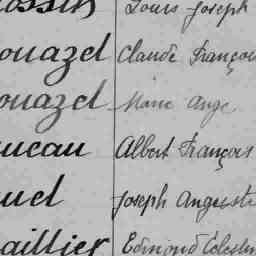 ossin Louis Joseph
ouazel Claude Françoi
ouazel Marie Ange
ueau Albert François
uel Joseph Auguste
aillier Edmond Celestin